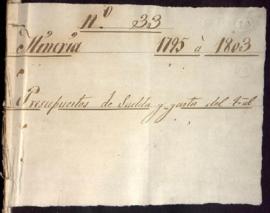 Nº 33
Mineria 1795 à 1803
Presupuestos de Sueldos y gastos del Tral